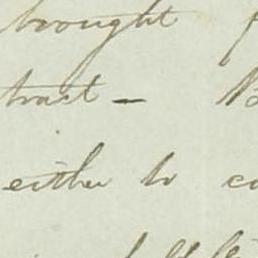 brought f
tract – B
either to co